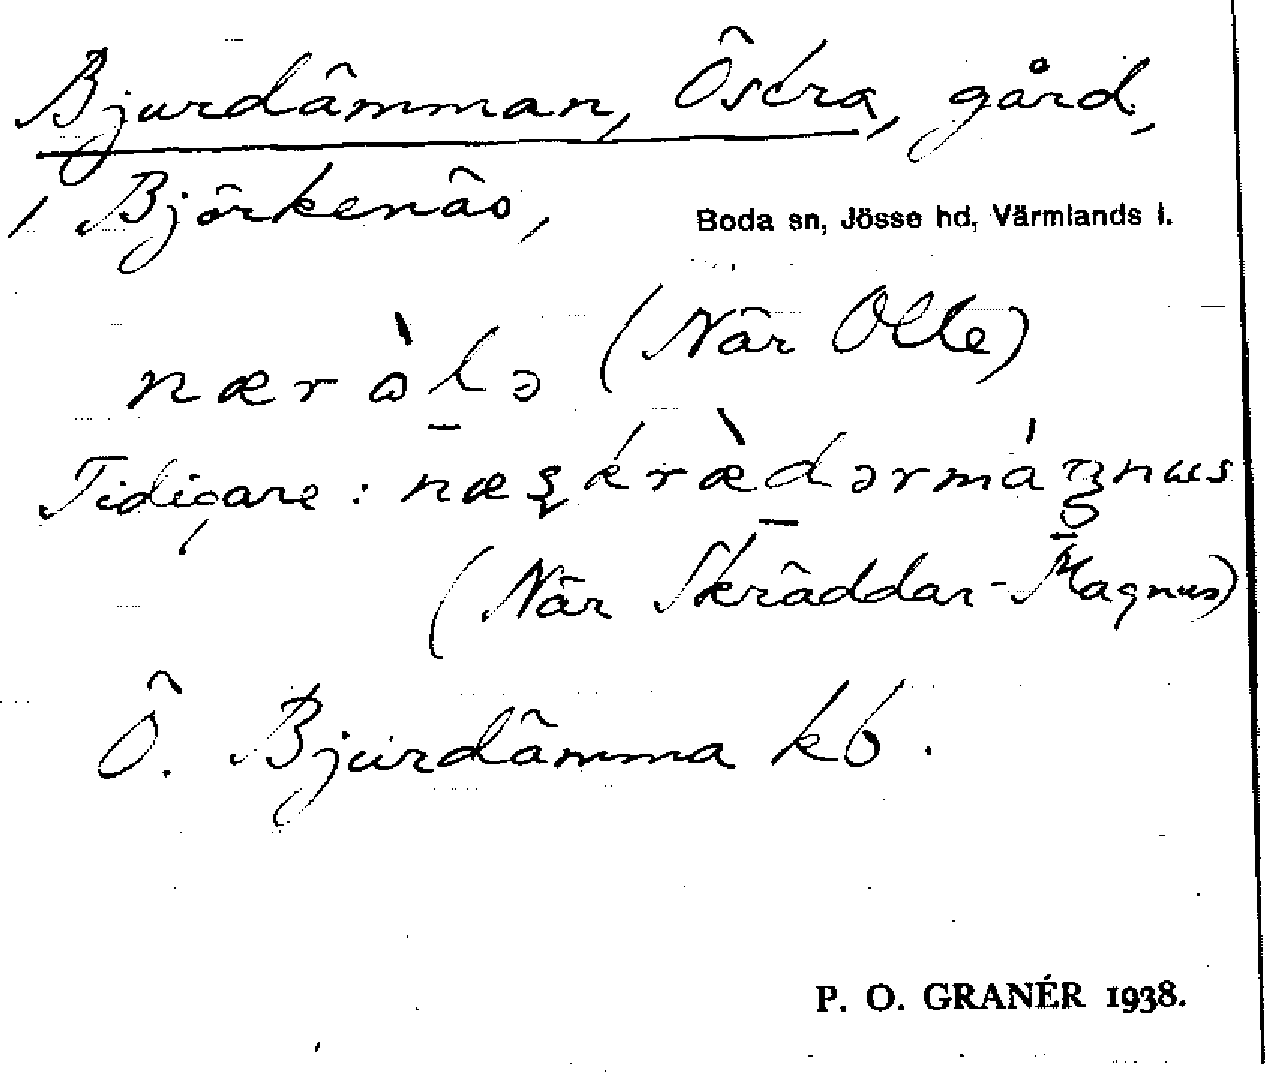 Bjurdämman, Östra, gård,
i Björkenäs,
Boda sn, Jösse hd, Värmlands l.
nær ò̀lə (När Olle)
Tidigare: næʂkrædərmáŋnus
(När Skräddar-Magnus)
Ö. Bjurdämma kb.
P. O. GRANÉR 1938.